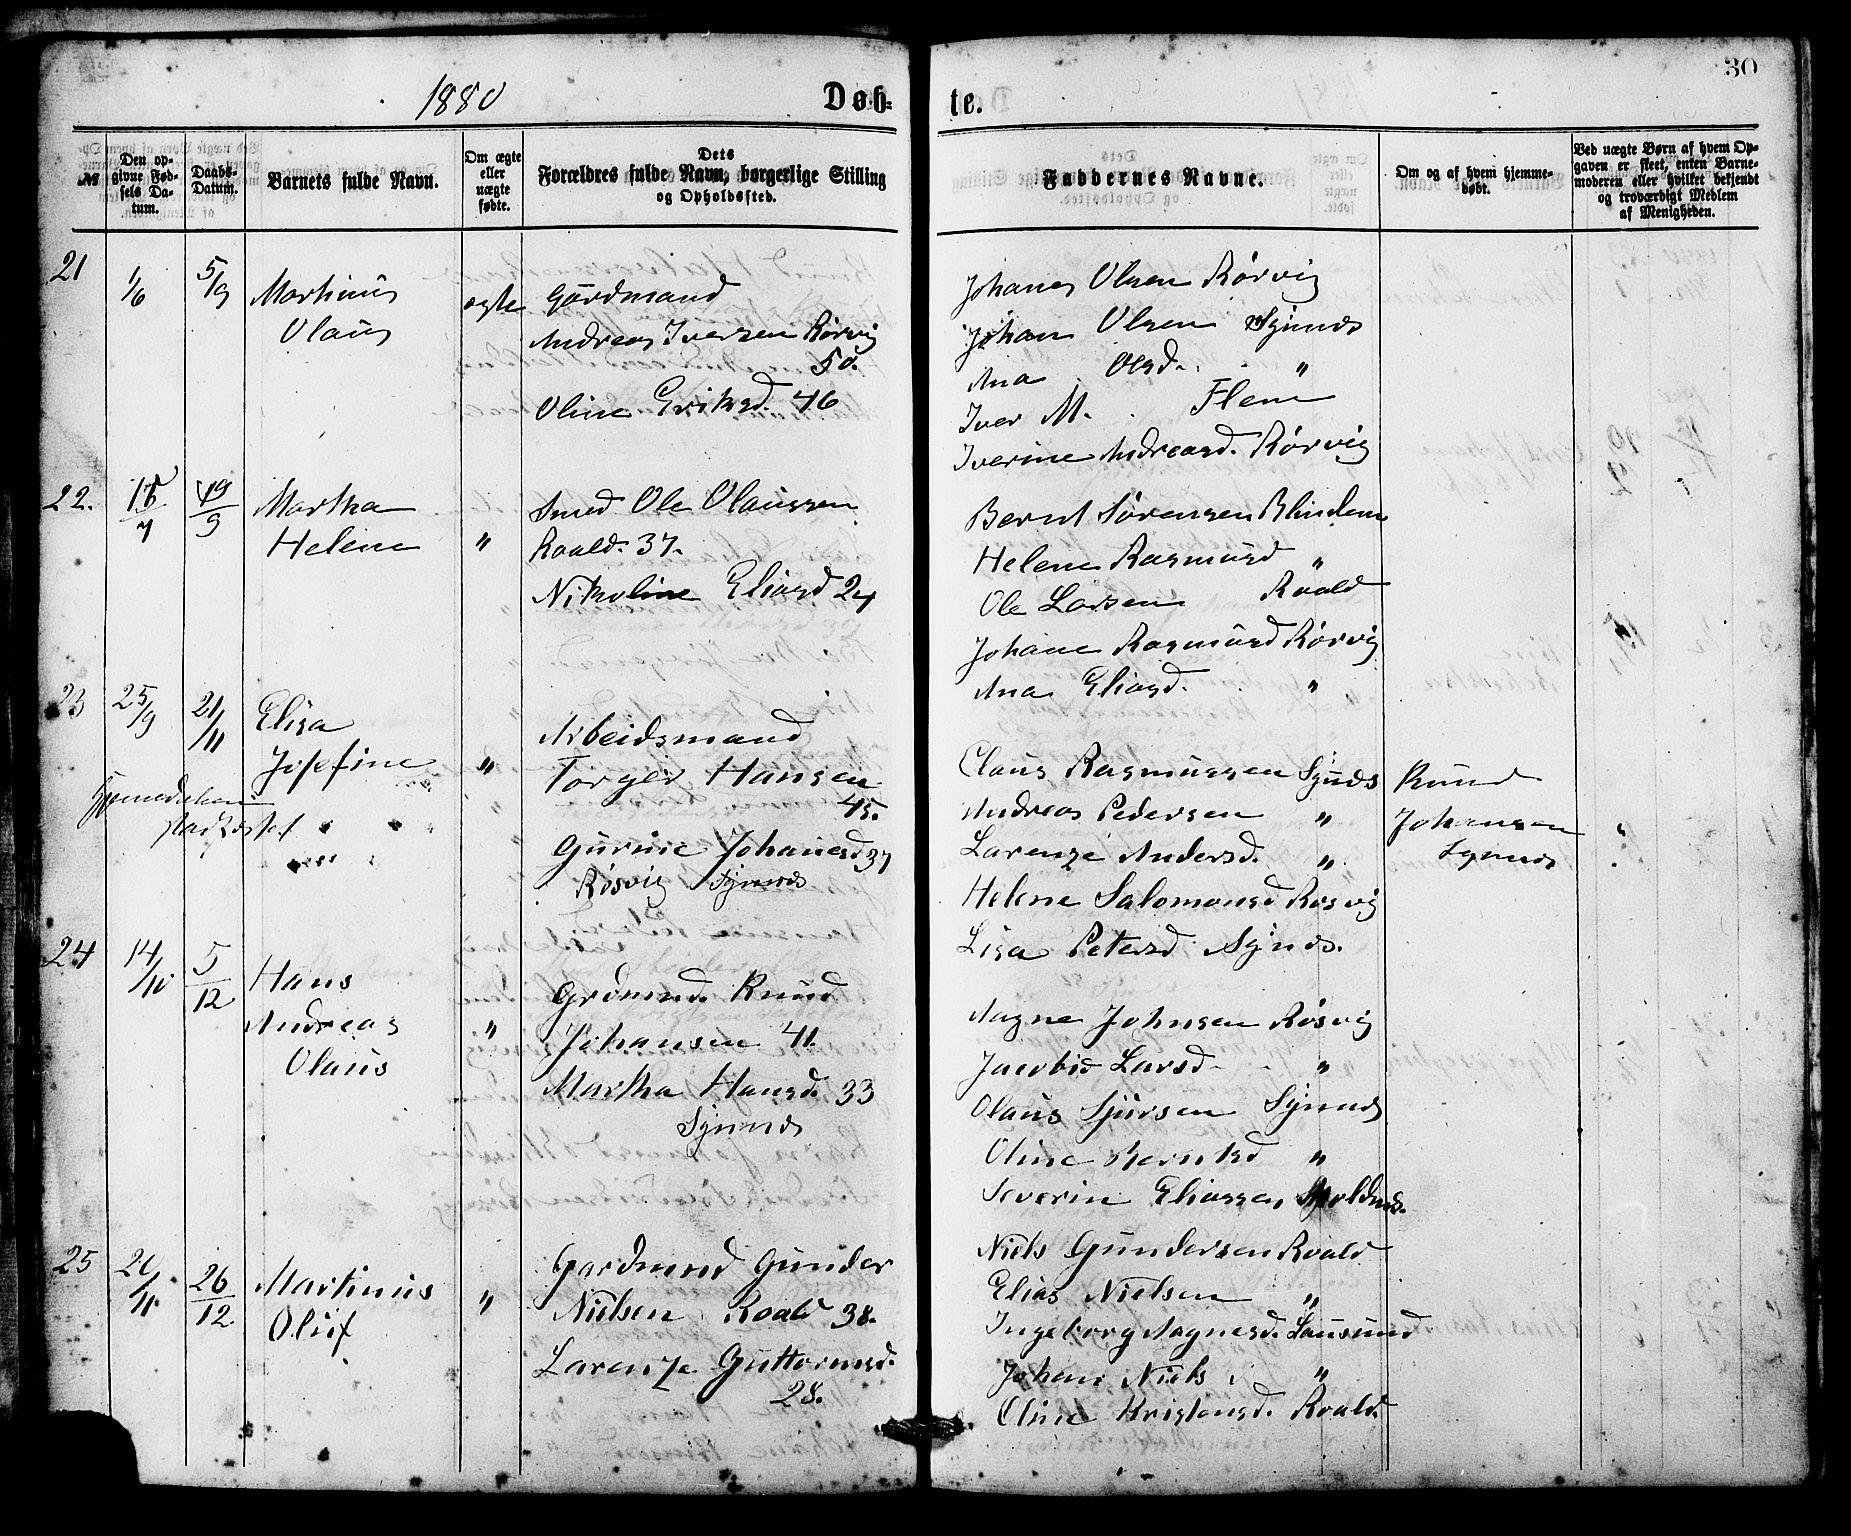 30
1880 Døb- te.
№
Den op-
givne Fød-
sels Da-
tum.
Daabs-
Datum.
Barnets fulde Navn.
Om ægte
eller
uægte
fødte.
Dets
Forældres fulde Navn, borgerlige Stilling
og Opholdssted.
Faddernes Navne.
Om og af hvem hjemme-
døbt.
Ved uægte Børn af hvem Op-
gaven er skeet, enten Barne-
moderen eller hvilket bekjendt
og troværdigt Medlem
af Menigheden.
21 1/6 5/9
Martinus
Olaus
ægte
Gårdmand
Andreas Iversen Rørvig
50.
Oline Eriksd. 46
Johanes Olsen Rørvig
Johan Olsen Synnæs
Ana Olsd. "
Iver M. Flem
Iverine Andreasd. Rørvig
22. 15/7 19/9
Martha
Helene
"
Smed Ole Olaussen
Roald. 37.
Nikoline Eliasd 24
Bernt Sørensen Blindem
Helene Rasmusd "
Ole Larsen Roald
Johane Rasmusd Rørvig
Ana Eliasd. "
23 25/9 21/11
Elisa
Josefine
"
Hjemedaaben
stadfæstet
Arbeidsmand
Torger Hansen
45.
Gurine Johanesd 37
Røsvig Synnæs
Claus Rasmussen Synæs
Andreas Pedersen "
Larenze Andersd. "
Helene Salomonsd Røsvig
Lisa Petersd Synæs.
Knud
Johansen
Synnæs
24 14/10 5/12
Hans
Andreas
Olaus
"
Grdmnd. Knud
Johansen 41.
Martha Hansd. 33
Synnæs
Aagne Johnsen Røsvig
Jacobid Larsd. "
Olaus Sjursen Synnæs
Oline Berntsd "
Severin Eliassen Moldnæs.
25 20/11. 26/12.
Martinus
Oluf
"
Gardmnd Gunder
Nielsen Roald 38.
Larenze Guttormsd.
28.
Niels Gundersen Roald
Elias Nielsen "
Ingeborg Aagnesd. Lausund
Johan Niels. "
Oline Kristensd. Roald.